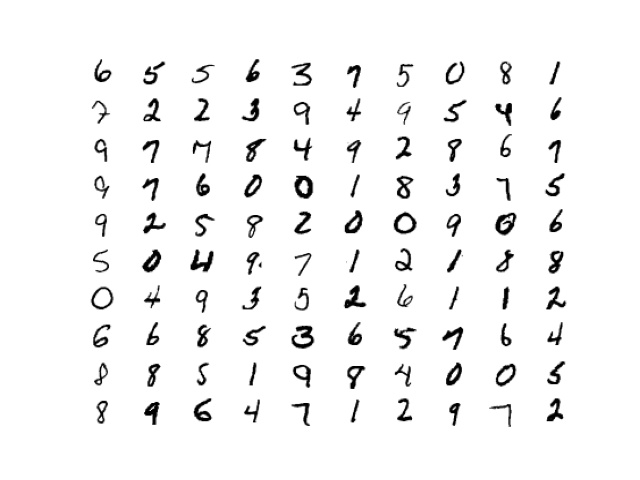 6 5 5 6 3 7 5 0 8 1
7 2 2 3 9 4 9 5 4 6
9 7 7 8 4 9 2 8 6 7
9 7 6 0 0 1 8 3 7 5
9 2 5 8 2 0 0 9 0 6
5 0 4 9 7 1 2 1 8 8
0 4 9 3 5 2 6 1 1 2
6 6 8 5 3 6 5 7 6 4
8 8 5 1 9 8 4 0 0 5
8 9 6 4 7 1 2 9 7 2